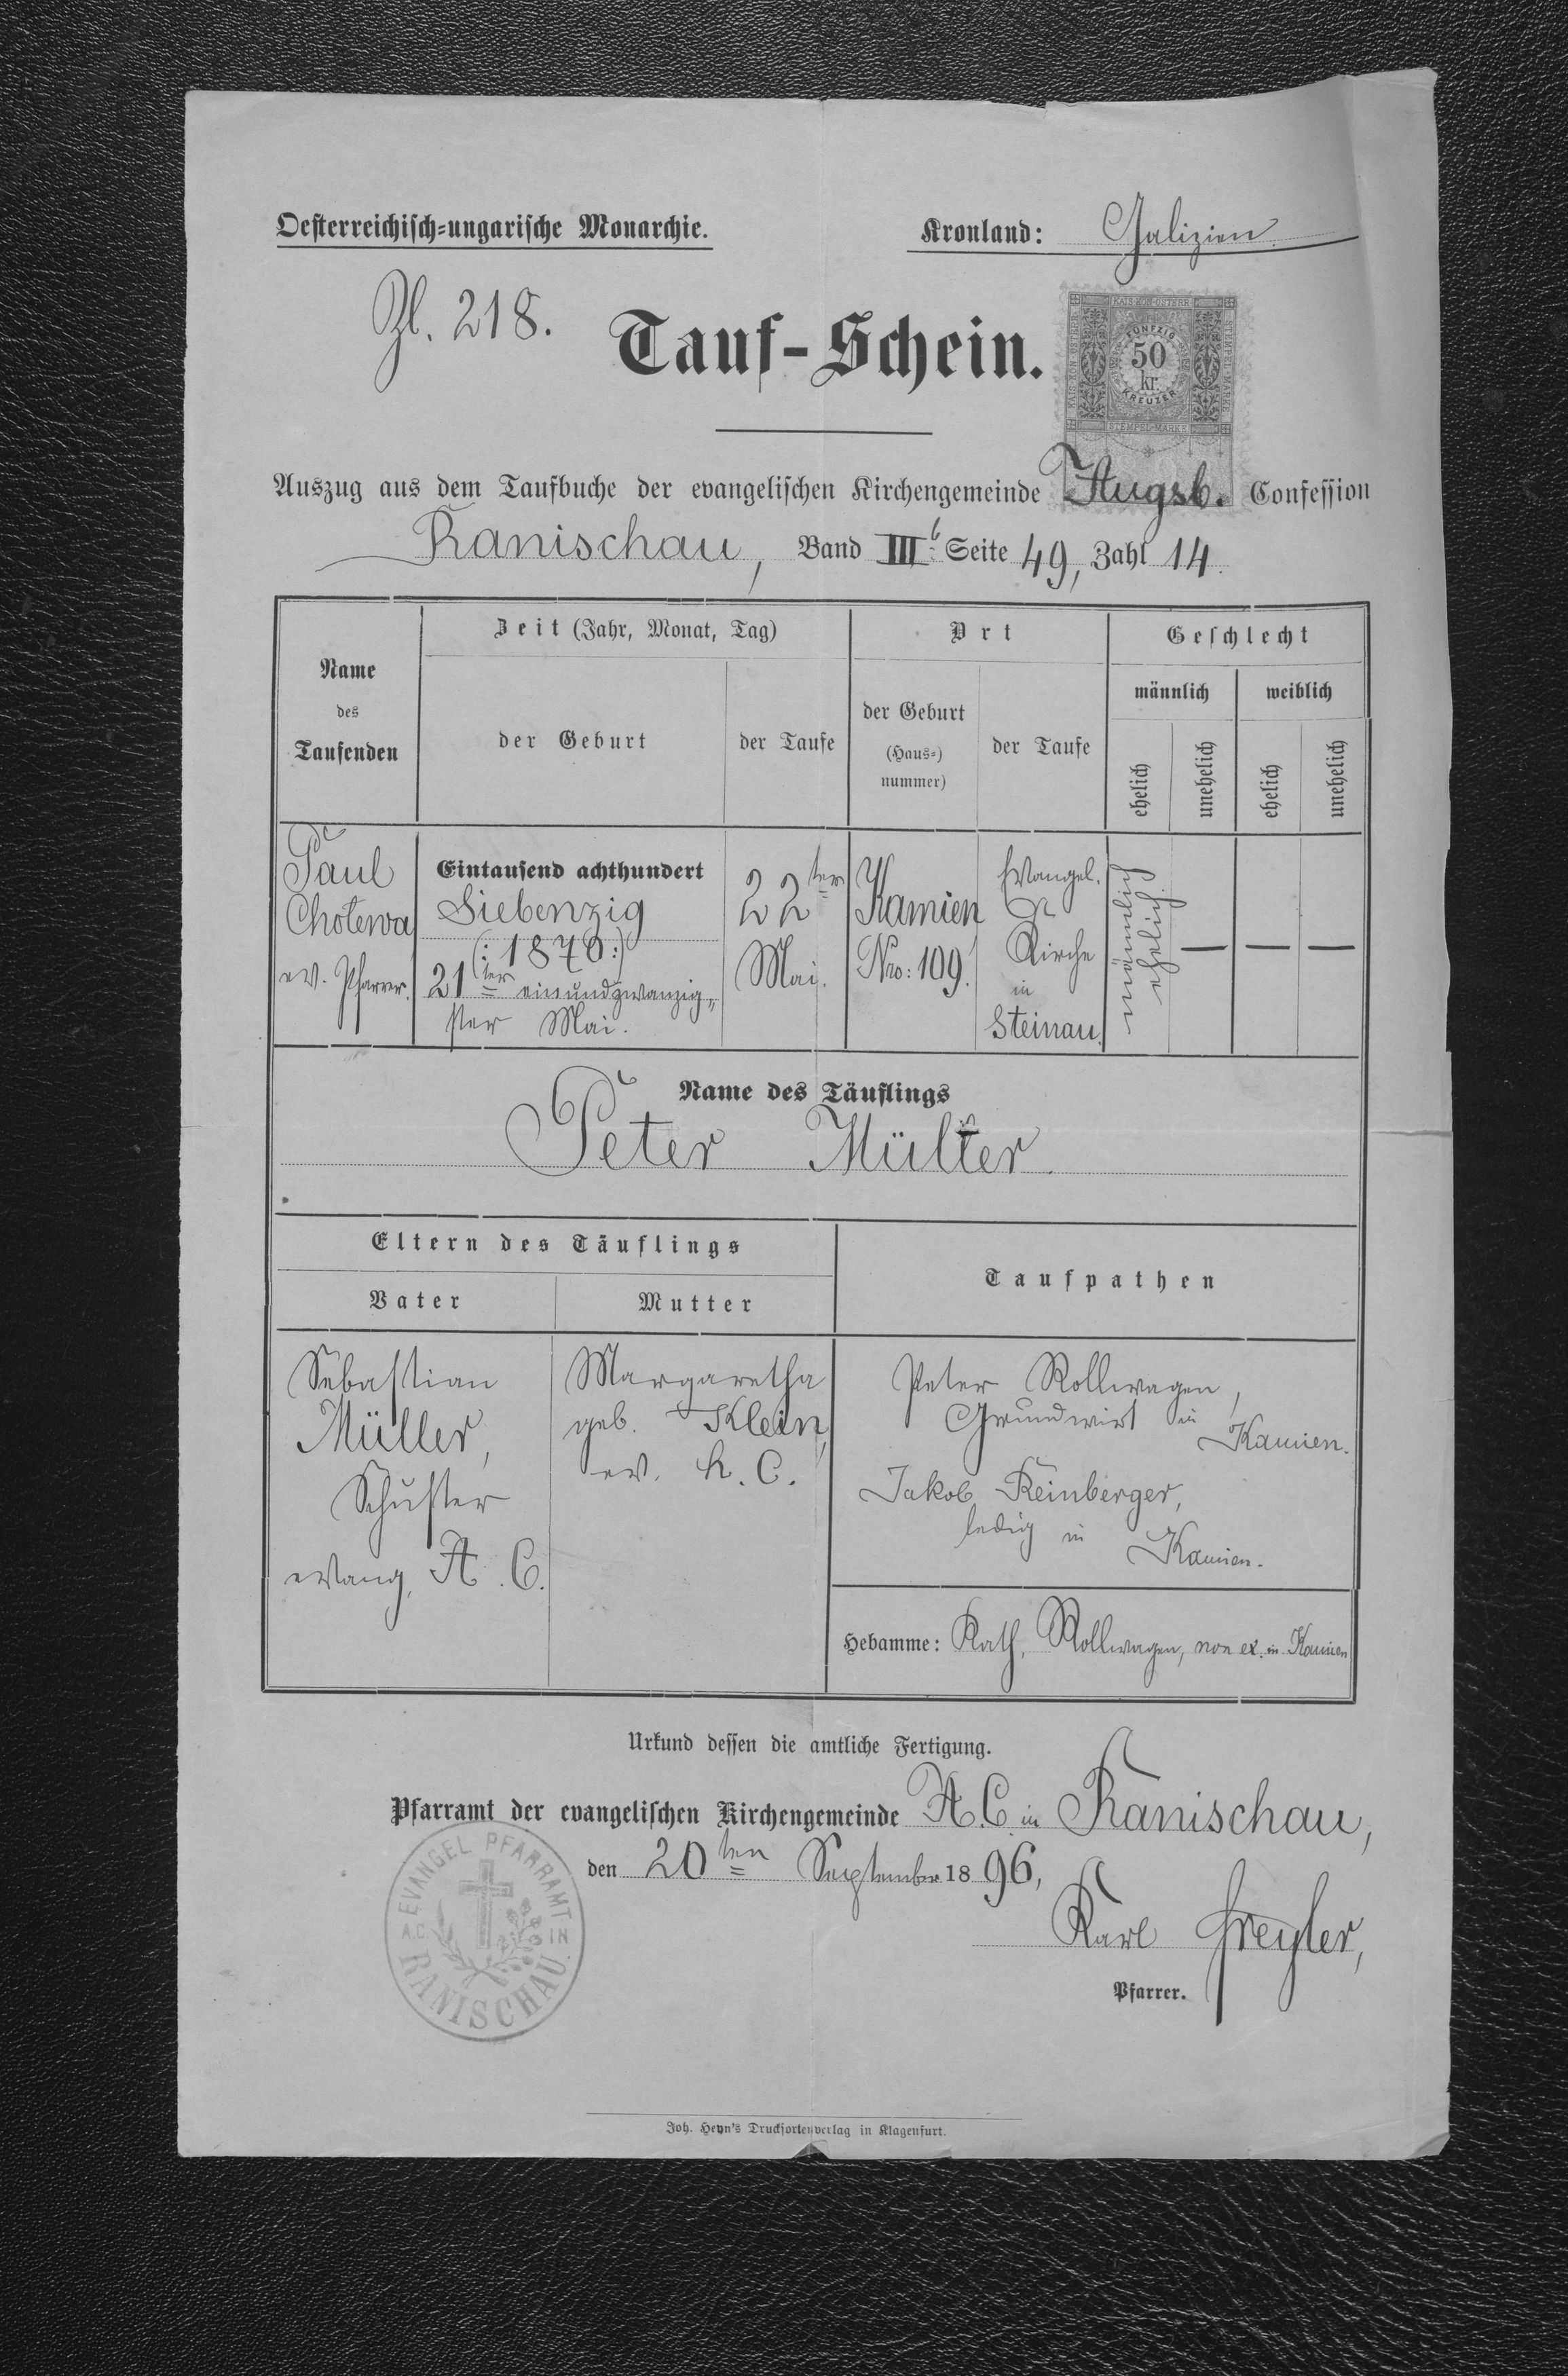 Oesterreichisch-ungarische Monarchie.
Kronland: Galizien.
Zl. 218.
Tauf-Schein.
KAIS. KÖN. ÖSTERR.
STEMPEL-MARKE
FÜNFZIG
50
kr.
KREUZER
STEMPEL-MARKE
Auszug aus dem Taufbuche der evangelischen Kirchengemeinde Augsb. Confession
Ranischau, Band III b. Seite 49, Zahl 14.
Name
des
Taufenden
Zeit (Jahr, Monat, Tag)
der Geburt
der Taufe
Ort
der Geburt
(Haus-)
nummer)
der Taufe
Geschlecht
männlich
weiblich
ehelich
unehelich
ehelich
unehelich
Paul
Cholewa
ev. Pfarrer.
Eintausend achthundert
Siebenzig
(: 1870 :)
21ter einundzwanzig„
ster Mai.
22ter
Mai.
Kamien
Nro: 109.
Evangel.
Kirche
in
Steinau.
männlich
ehelich
Name des Täuflings
Peter Müller.
Eltern des Täuflings
Vater
Mutter
Taufpathen
Sebastian
Müller,
Schuster
evang. A. C.
Margaretha
geb. Klein,
ev. h. C.
Peter Rollwagen,
Grundwirt in
Kamien.
Jakob Reinberger,
ledig in
Kamien.
Hebamme: Kath. Rollwagen, non ex. in Kamien
Urkund dessen die amtliche Fertigung.
Pfarramt der evangelischen Kirchengemeinde A. C. in Ranischau,
den 20ten September 1896,
EVANGEL PFARRAMT
A.C. IN
RANISCHAU.
Karl Freyler,
Pfarrer.
Joh. Heyn's Drucksortenverlag in Klagenfurt.